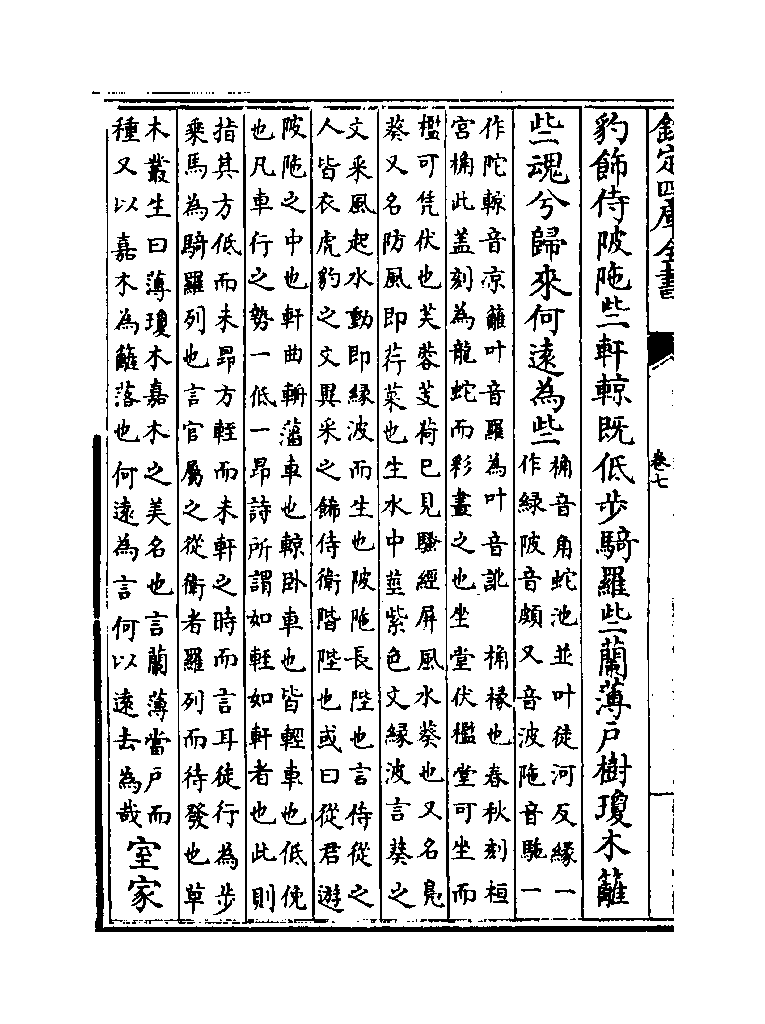 欽定四庫全書
卷七
豹飾侍陂陁些軒輬既低步騎羅些蘭薄戶樹瓊木籬
些魂兮歸來何遠為些
桷音角蛇池並叶徒河反緣一
作緑陂音頗又音波陁音駞一
作陀輬音凉籬叶音羅為叶音訛　桷椽也春秋刻桓
宮桷此盖刻為龍蛇而彩畫之也坐堂伏檻堂可坐而
檻可凭伏也芙蓉芰荷已見騷經屏風水葵也又名鳬
葵又名防風即荇菜也生水中莖紫色文緣波言葵之
文采風起水動即緣波而生也陂陁長陛也言侍從之
人皆衣虎豹之文異采之飾侍衛階陛也或曰從君遊
陂陁之中也軒曲輈藩車也輬卧車也皆輕車也低俛
也凡車行之勢一低一昂詩所謂如輊如軒者也此則
指其方低而未昂方輊而未軒之時而言耳徒行為步
乘馬為騎羅列也言官屬之從衛者羅列而待發也草
木叢生曰薄瓊木嘉木之美名也言蘭薄當戶而
種又以嘉木為籬落也何遠為言何以遠去為哉
室家